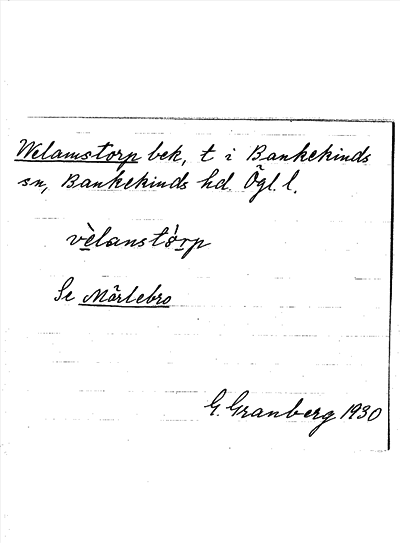 Welamstorp bek, t i Bankekinds
sn, Bankekinds hd. Ögl. l.
vèlanstórp
Se Mårlebro
G. Granberg 1930